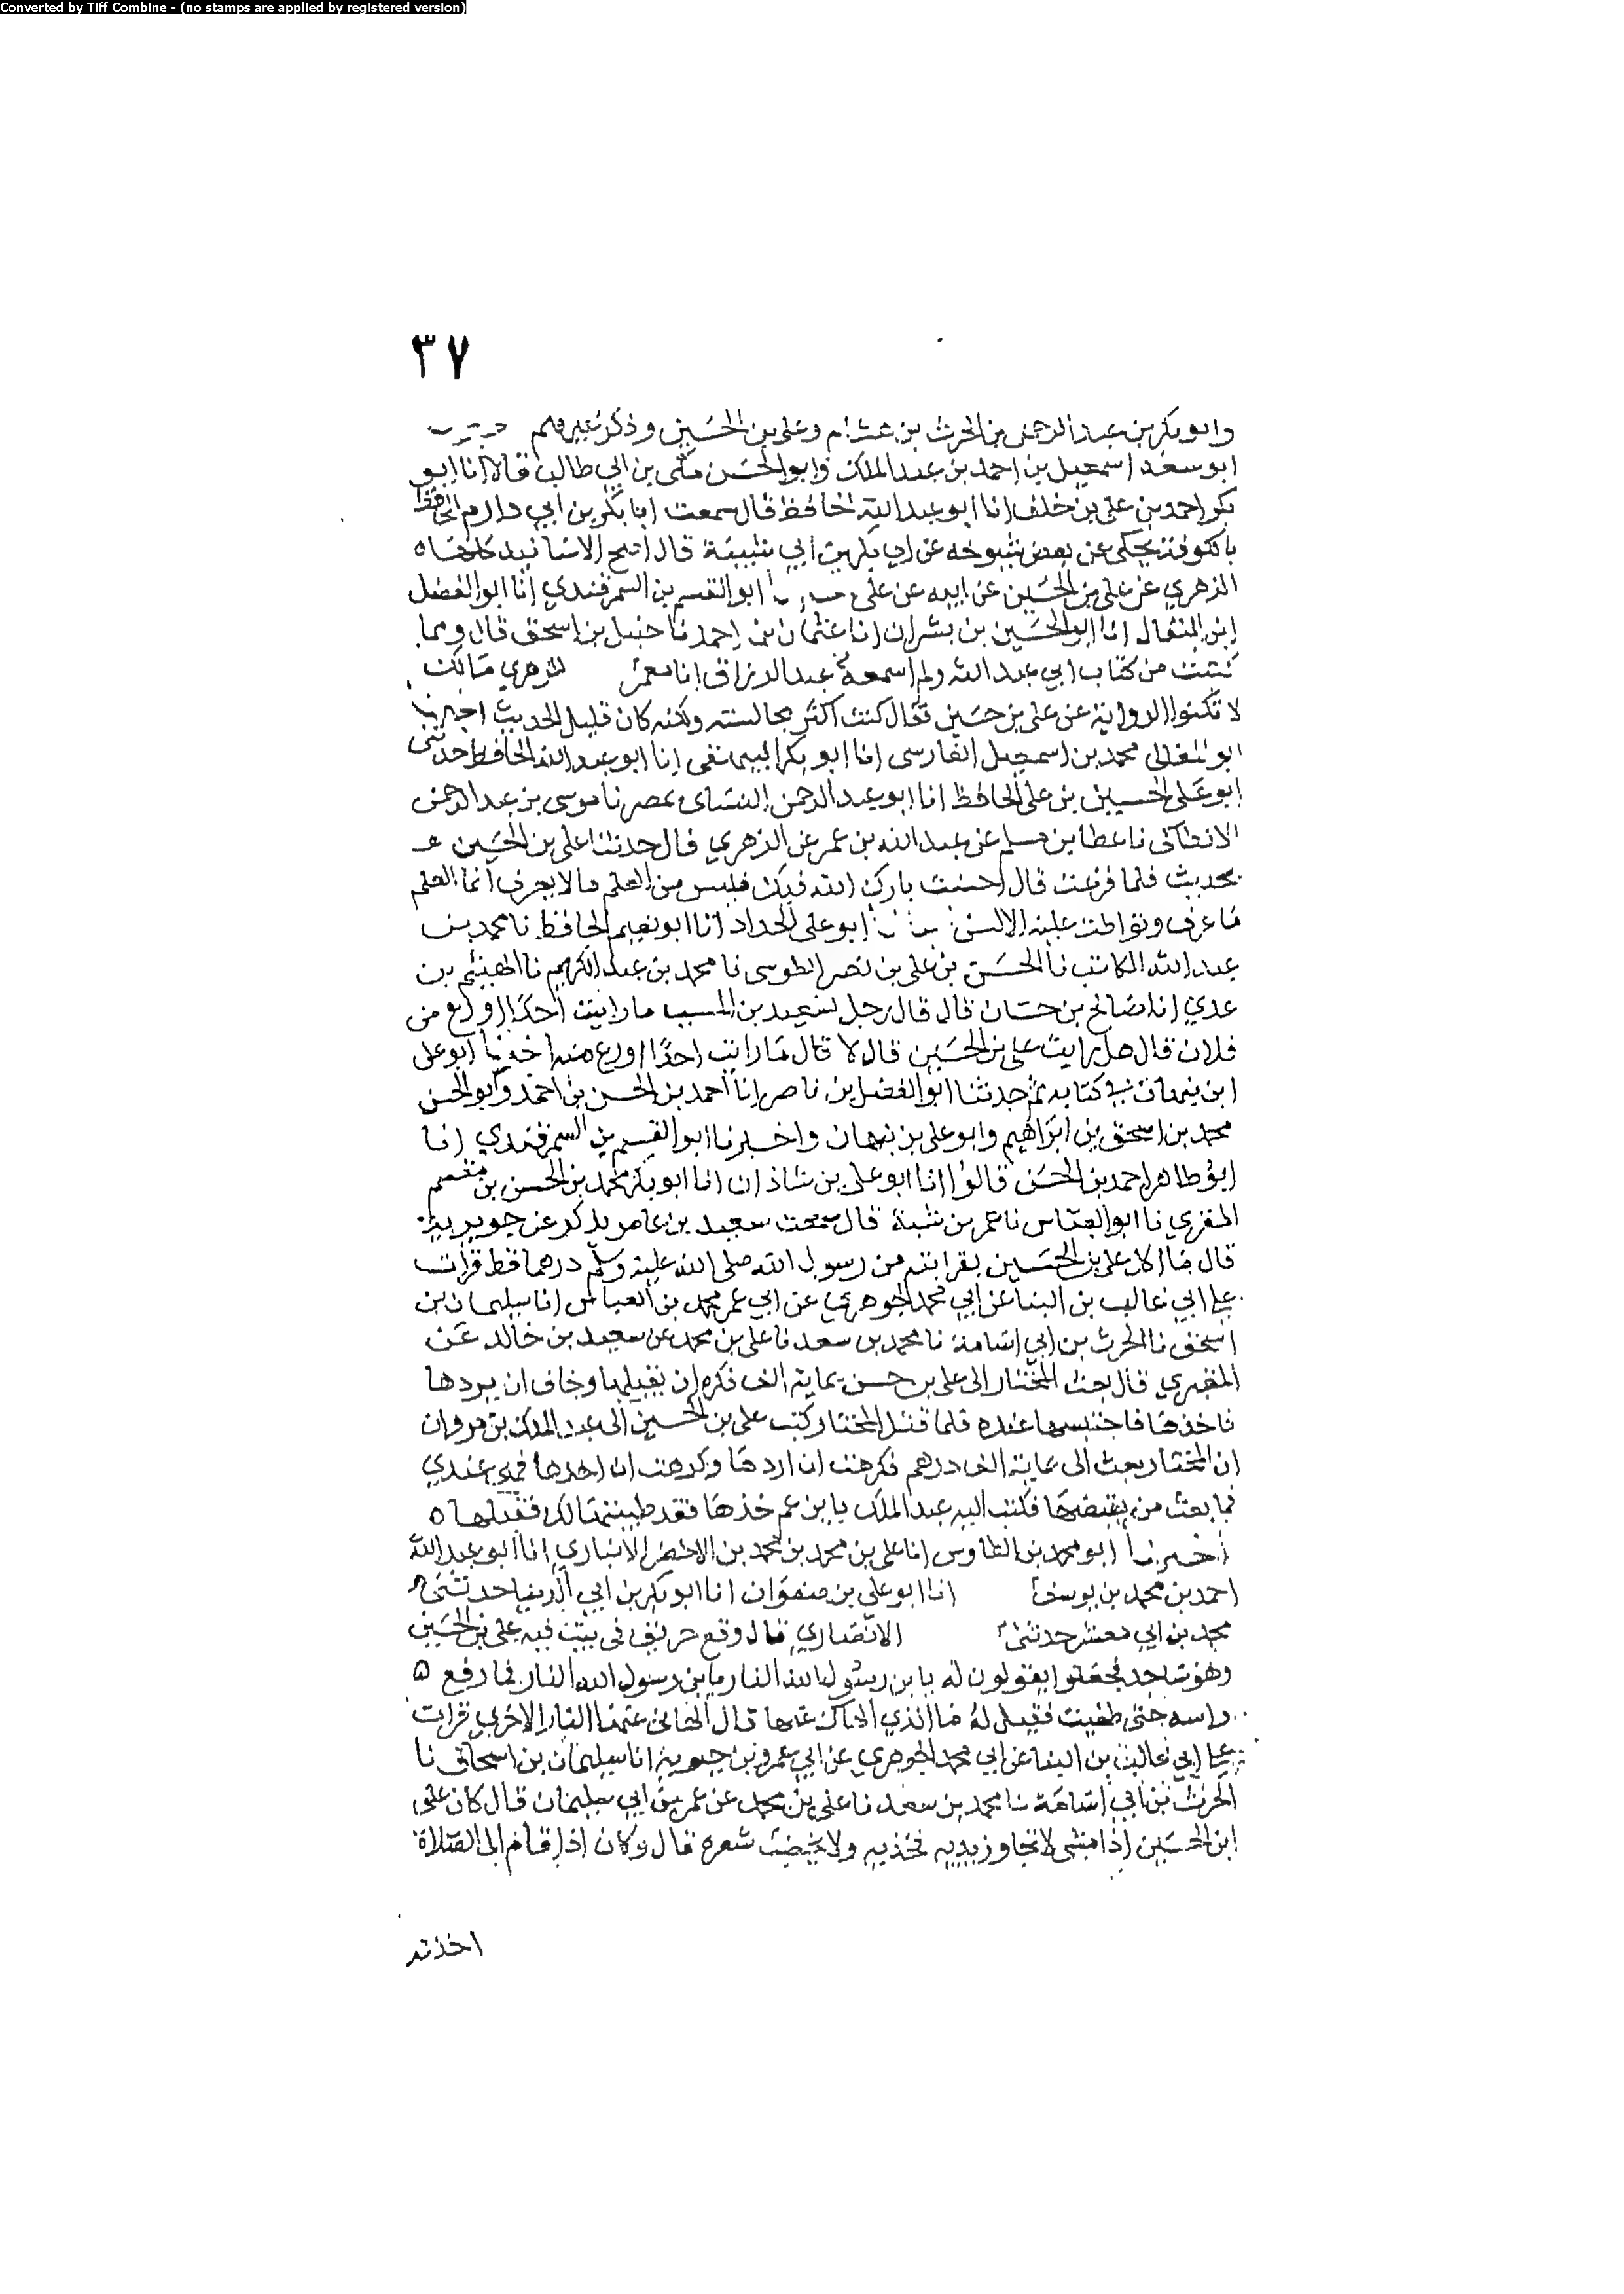 Converted by Tiff Combine - (no stamps are applied by registered version)
٣٧
وابو بكر بن عبد الرحمن بن الحرث بن هشام وعلي بن الحسين وذكر غيرهم
ابو سعد اسمعيل بن احمد بن عبد الملك وابو الحسن مكي بن ابي طالب قالا انا ابو
بكر احمد بن علي بن خلف انا ابو عبد الله الحافظ قال سمعت ابا بكر بن ابي دارم الحافظ
بالكوفة يحكى عن بعض شيوخه عن ابي بكر بن ابي شيبة قال اصح الاسانيد كلها ه
الزهري عن علي بن الحسين عن ابيه عن علي ابو القسم بن السمرقندي انا ابو الفضل
ابن البقال انا ابو الحسين بن بشران انا عثمان بن احمد نا حنبل بن اسحق قال ومما
كتبت من كتاب ابي عبد الله ولم اسمعه عبد الرزاق انا معمر للزهري مالك
لا تكثر الرواية عن علي بن حسين فقال كنت اكثر مجالسته ولكنه كان قليل الحديث اخبرنا
ابو المعالي محمد بن اسمعيل الفارسي انا ابو بكر البيهقي انا ابو عبد الله الحافظ حدثني
ابو علي الحسين بن علي الحافظ انا ابو عبد الرحمن النسائي بمصر نا موسى بن عبد الرحمن
الانطاكي نا عطا بن مسلم عن عبد الله بن عمر عن الزهري قال حدثنا علي بن الحسين
بحديث فلما فرغت قال احسنت بارك الله فيك فليس من العلم ما لا يعرف انما العلم
ما عرف وتواطت عليه الالسن ابو علي الحداد انا ابو نعيم الحافظ نا محمد بن
عبد الله الكاتب نا الحسن بن علي بن نصر الطوسي نا محمد بن عبد الكريم نا الهيثم بن
عدي انا صالح بن حسان قال قال رجل لسعيد بن المسيب ما رايت احدا اورع من
فلان قال هل رايت علي بن الحسين قال لا قال ما رايت احدا اورع منه اخبرنا ابو علي
ابن نبهان في كتابه ثم حدثنا ابو الفضل بن ناصر انا احمد بن الحسن بن احمد وابو الحسن
محمد بن اسحق بن ابراهيم وابو علي بن نبهان واخبرنا ابو القسم بن السمرقندي انا
ابو طاهر احمد بن الحسن قالوا انا ابو علي بن شاذان انا ابو بكر محمد بن الحسن بن مقسم
المقري نا ابو العباس نا عمر بن شبة قال سمعت سعيد بن عامر يذكر عن جويرية
قال ما اكل علي بن الحسين بقرابته من رسول الله صلى الله عليه وسلم درهما قط قرات
علي ابي غالب بن البنا عن ابي محمد الجوهري عن ابي عمر محمد بن العباس انا سليمان بن
اسحق نا الحرث بن ابي اسامة نا محمد بن سعد نا علي بن محمد عن سعيد بن خالد عن
المقبري قال بعث المختار الى علي بن حسين بماية الف فكره ان يقبلها وخاف ان يردها
فاخذها فاحتبسها عنده فلما قتل المختار كتب علي بن الحسين الى عبد الملك بن مروان
ان المختار بعث الى بماية الف درهم فكرهت ان اردها وكرهت ان اخذها فهي عندي
فابعث من يقبضها فكتب اليه عبد الملك يا ابن عم خذها فقد طيبتها لك فقبلها ه
اخبرنا ابو محمد بن الطاوس انا علي بن محمد بن محمد بن الاخضر الانباري انا ابو عبد الله
احمد بن محمد بن يوسف انا ابو علي بن صفوان انا ابو بكر بن ابي الدنيا حدثني
محمد بن ابي معشر حدثني الانصاري قال وقع حريق في بيت فيه علي بن الحسين
وهو ساجد فجعلوا يقولون له يا ابن رسول الله النار يا ابن رسول الله النار فما رفع
راسه حتى طفيت فقيل له ما الذي الهاك عنها قال الهاني عنها النار الاخرى قرات
علي ابي غالب بن البنا عن ابي محمد الجوهري عن ابي عمر بن حيوية انا سليمان بن اسحاق نا
الحرث بن ابي اسامة نا محمد بن سعد نا علي بن محمد عن عمر بن ابي سليمان قال كان علي
ابن الحسين اذا مشى لا تجاوز يديه فخذيه ولا يخضب شعره قال وكان اذا قام الى الصلاة
اخذته